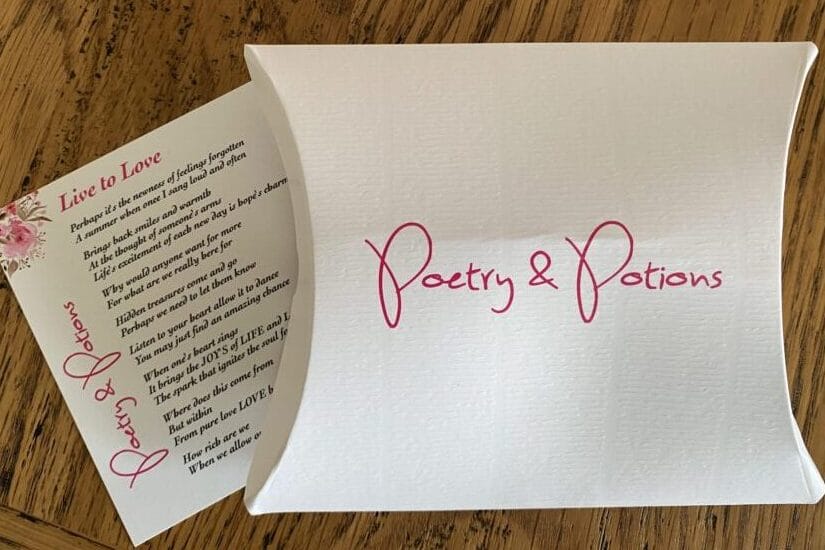 Live to Love
Perhaps it's the newness of feelings forgotten
A summer when once I sang loud and often
Brings back smiles and warmth
At the thought of someone's arms
Life's excitement of each new day is hope's charm
Why would anyone want for more
For what are we really here for
Hidden treasures come and go
Perhaps we need to let them know
Listen to your heart allow it to dance
You may just find an amazing chance
When one's heart sings
It brings the JOY'S of LIFE and L
The spark that ignites the soul
Where does this come from
But within
From pure love LOVE
How rich are we
When we allow
Poetry & Potions
Poetry & Potions